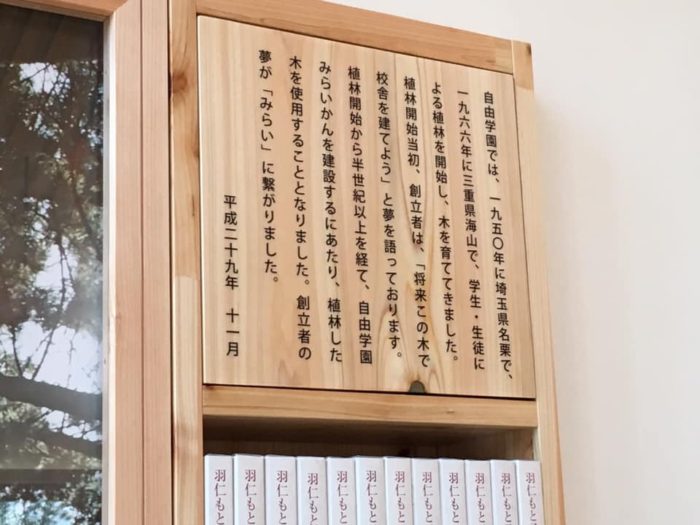 自由学園では、一九五〇年に埼玉県名栗で、
一九六六年に三重県海山で、学生・生徒に
よる植林を開始し、木を育ててきました。
植林開始当初、創立者は、「将来この木で
校舎を建てよう」と夢を語っております。
植林開始から半世紀以上を経て、自由学園
みらいかんを建設するにあたり、植林した
木を使用することとなりました。創立者の
夢が「みらい」に繋がりました。
平成二十九年 十一月
羽仁もと
羽仁もと
羽仁もと
羽仁もと
羽仁もと
羽仁もと
羽仁もと
羽仁もと
羽仁もと
羽仁もと
羽仁もと
羽仁もと